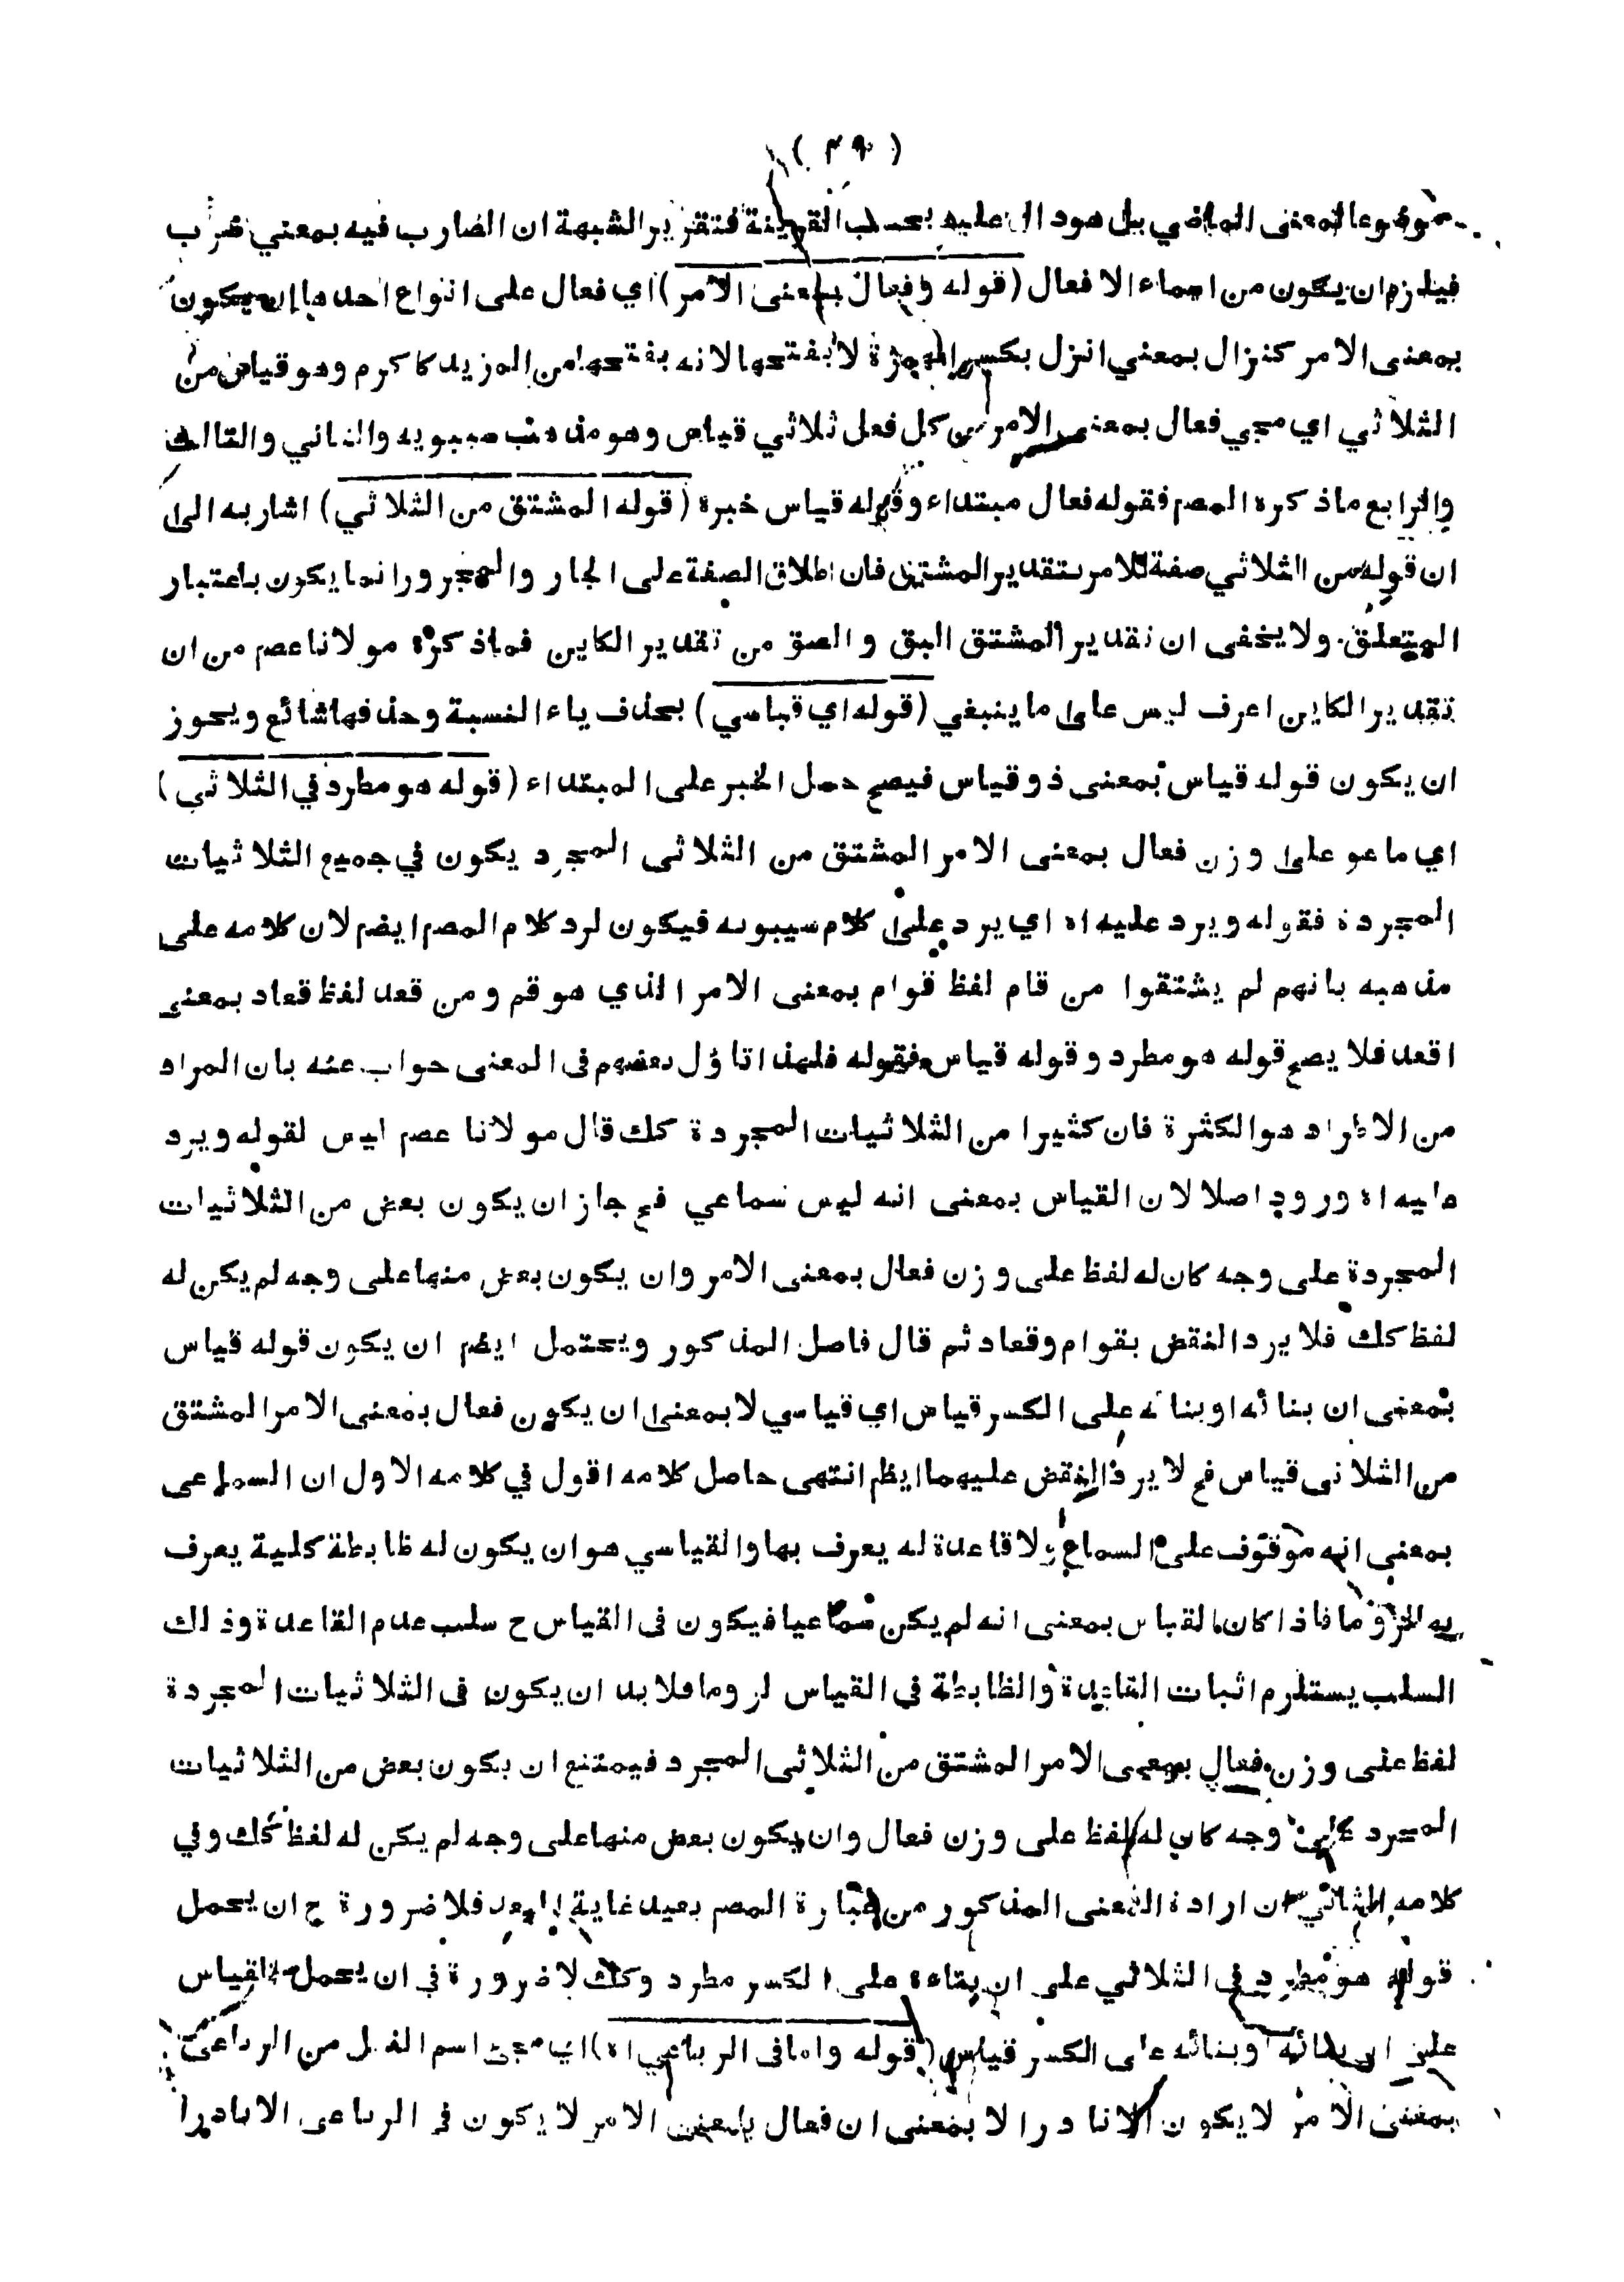 ( ٣٩ )
موضوعا لمعنى الماضي بل هو دال عليه بحسب القرينة فتقرير الشبهة ان الضارب فيه بمعني ضرب
فيلزم ان يكون من اسماء الافعال (قوله وفعال بمعنى الامر) اي فعال على انواع احدها ان يكون
بمعنى الامر كنزال بمعني انزل بكسر الهمزة لا بفتحها لانه بفتحها من المزيد كاكرم وهو قياس من
الثلاثي اي مجي فعال بمعنى الامر من كل فعل ثلاثي قياس وهو مذهب سيبويه والثاني والثالث
والرابع ماذكره المصم فقوله فعال مبتداء وقوله قياس خبره (قوله المشتق من الثلاثي) اشار به الى
ان قوله من الثلاثي صفة للامر بتقدير المشتق فان اطلاق الصفة على الجار والمجرور انما يكون باعتبار
المتعلق ولا يخفى ان تقدير المشتق اليق و الصق من تقدير الكاين فماذكره مولانا عصم من ان
تقدير الكاين اعرف ليس على ما ينبغي (قوله اي قياسي) بحذف ياء النسبة وحذفها شائع ويجوز
ان يكون قوله قياس بمعنى ذو قياس فيصح حمل الخبر على المبتداء (قوله هو مطرد في الثلاثي)
اي ما هو على وزن فعال بمعنى الامر المشتق من الثلاثى المجرد يكون في جميع الثلاثيات
المجردة فقوله ويرد عليه اه اي يرد على كلام سيبويه فيكون لرد كلام المصم ايضم لان كلامه على
مذهبه بانهم لم يشتقوا من قام لفظ قوام بمعنى الامر الذي هو قم ومن قعد لفظ قعاد بمعنى
اقعد فلا يصح قوله هو مطرد وقوله قياس فقوله فلهذا تاؤل بعضهم فى المعنى جواب عنه بان المراد
من الاطراد هو الكثرة فان كثيرا من الثلاثيات المجردة كك قال مولانا عصم ليس لقوله ويرد
عليه اه ورود اصلا لان القياس بمعنى انه ليس سماعي فح جاز ان يكون بعض من الثلاثيات
المجردة على وجه كان له لفظ على وزن فعال بمعنى الامر وان يكون بعض منها على وجه لم يكن له
لفظ كك فلا يرد النقض بقوام وقعاد ثم قال فاضل المذكور ويحتمل ايضم ان يكون قوله قياس
بمعنى ان بنائه او بنائه على الكسر قياس اي قياسي لا بمعنى ان يكون فعال بمعنى الامر المشتق
من الثلاثى قياس فح لا يرد النقض عليهما ايظم انتهى حاصل كلامه اقول في كلامه الاول ان السماعى
بمعنى انه موقوف على السماع ولا قاعدة له يعرف بها والقياسي هو ان يكون له ظابطة كلية يعرف
به لزوما فاذا كان القياس بمعنى انه لم يكن سماعيا فيكون فى القياس ح سلب عدم القاعدة وذلك
السلب يستلزم اثبات القاعدة والظابطة فى القياس لزوما فلا بد ان يكون فى الثلاثيات المجردة
لفظ على وزن فعال بمعنى الامر المشتق من الثلاثى المجرد فيمتنع ان يكون بعض من الثلاثيات
المجرد على وجه كان له لفظ على وزن فعال وان يكون بعض منها على وجه لم يكن له لفظ كك وفي
كلامه الثاني ان ارادة المعنى المذكور من عبارة المصم بعيد غاية البعد فلا ضرورة ح ان يحمل
قوله هو مطرد فى الثلاثي على ان بناءه على الكسر مطرد وكك لا ضرورة في ان يحمل القياس
على ان بنائه او بنائه على الكسر قياس (قوله واما فى الرباعي اه) اي مجئ اسم الفعل من الرباعى
بمعنى الامر لا يكون الا نادرا لا بمعنى ان فعال بمعنى الامر لا يكون فى الرباعى الا نادرا